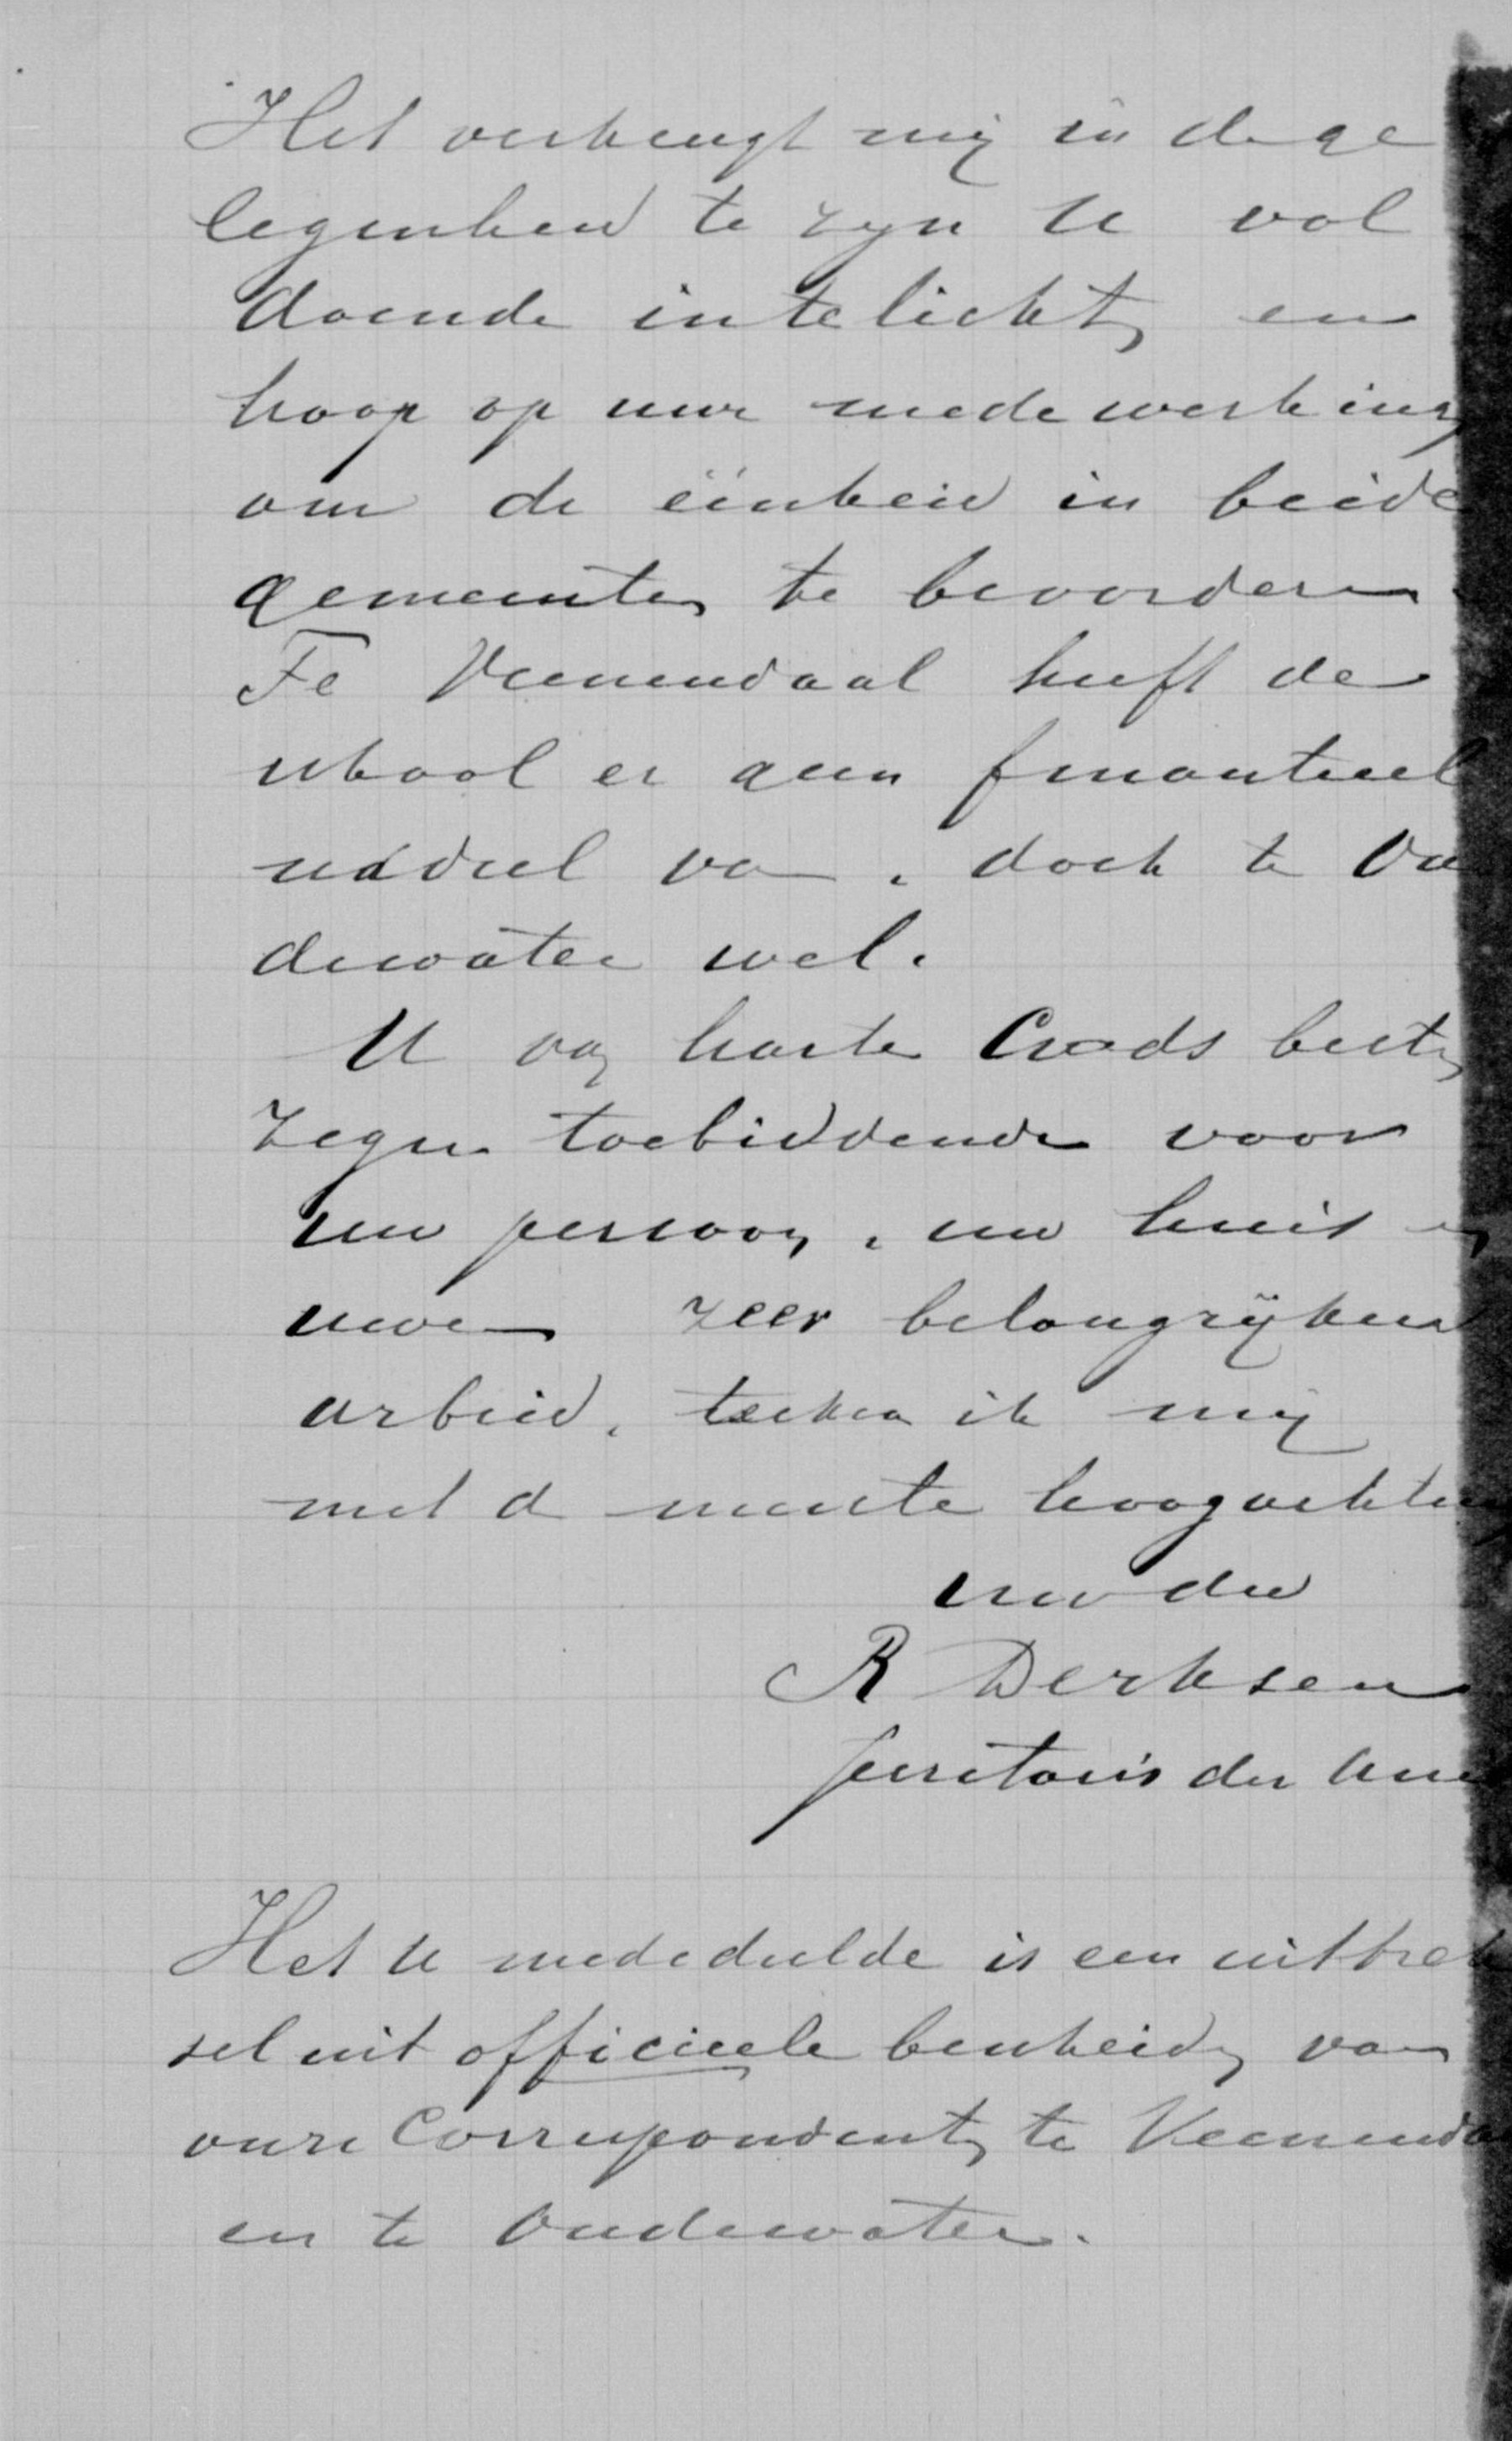 Het verheugt mij in de ge
legenheid te zyn U vol
doende intelichten en
hoop op uwe medewerking
om de eenheid in beide
gemeenten te bevorderen
Te Veenendaal heeft de
school er geen finantieel
nadeel van, doch te Ou
dewater wel.
U van harte Gods besten
zegen toebiddende voor
uw persoon, uw huis en
uwen zeer belangrijken
arbeid, teeken ik mij
met de meeste hoogachting
uw dw
R Derksen
secretaris der
Het U mededeelde is een uittrek
sel uit officieele bescheiden van
onze Correspondenten te Veenenda
en te Oudewater.